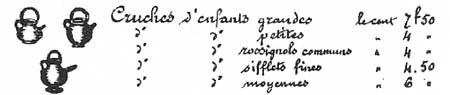 Cruches d'enfants grandes le cent 7f50
d° d° petites " 4 "
d° d° rossignols communs " 4 "
d° d° sifflets fines " 4.50
d° d° moyennes " 6 "